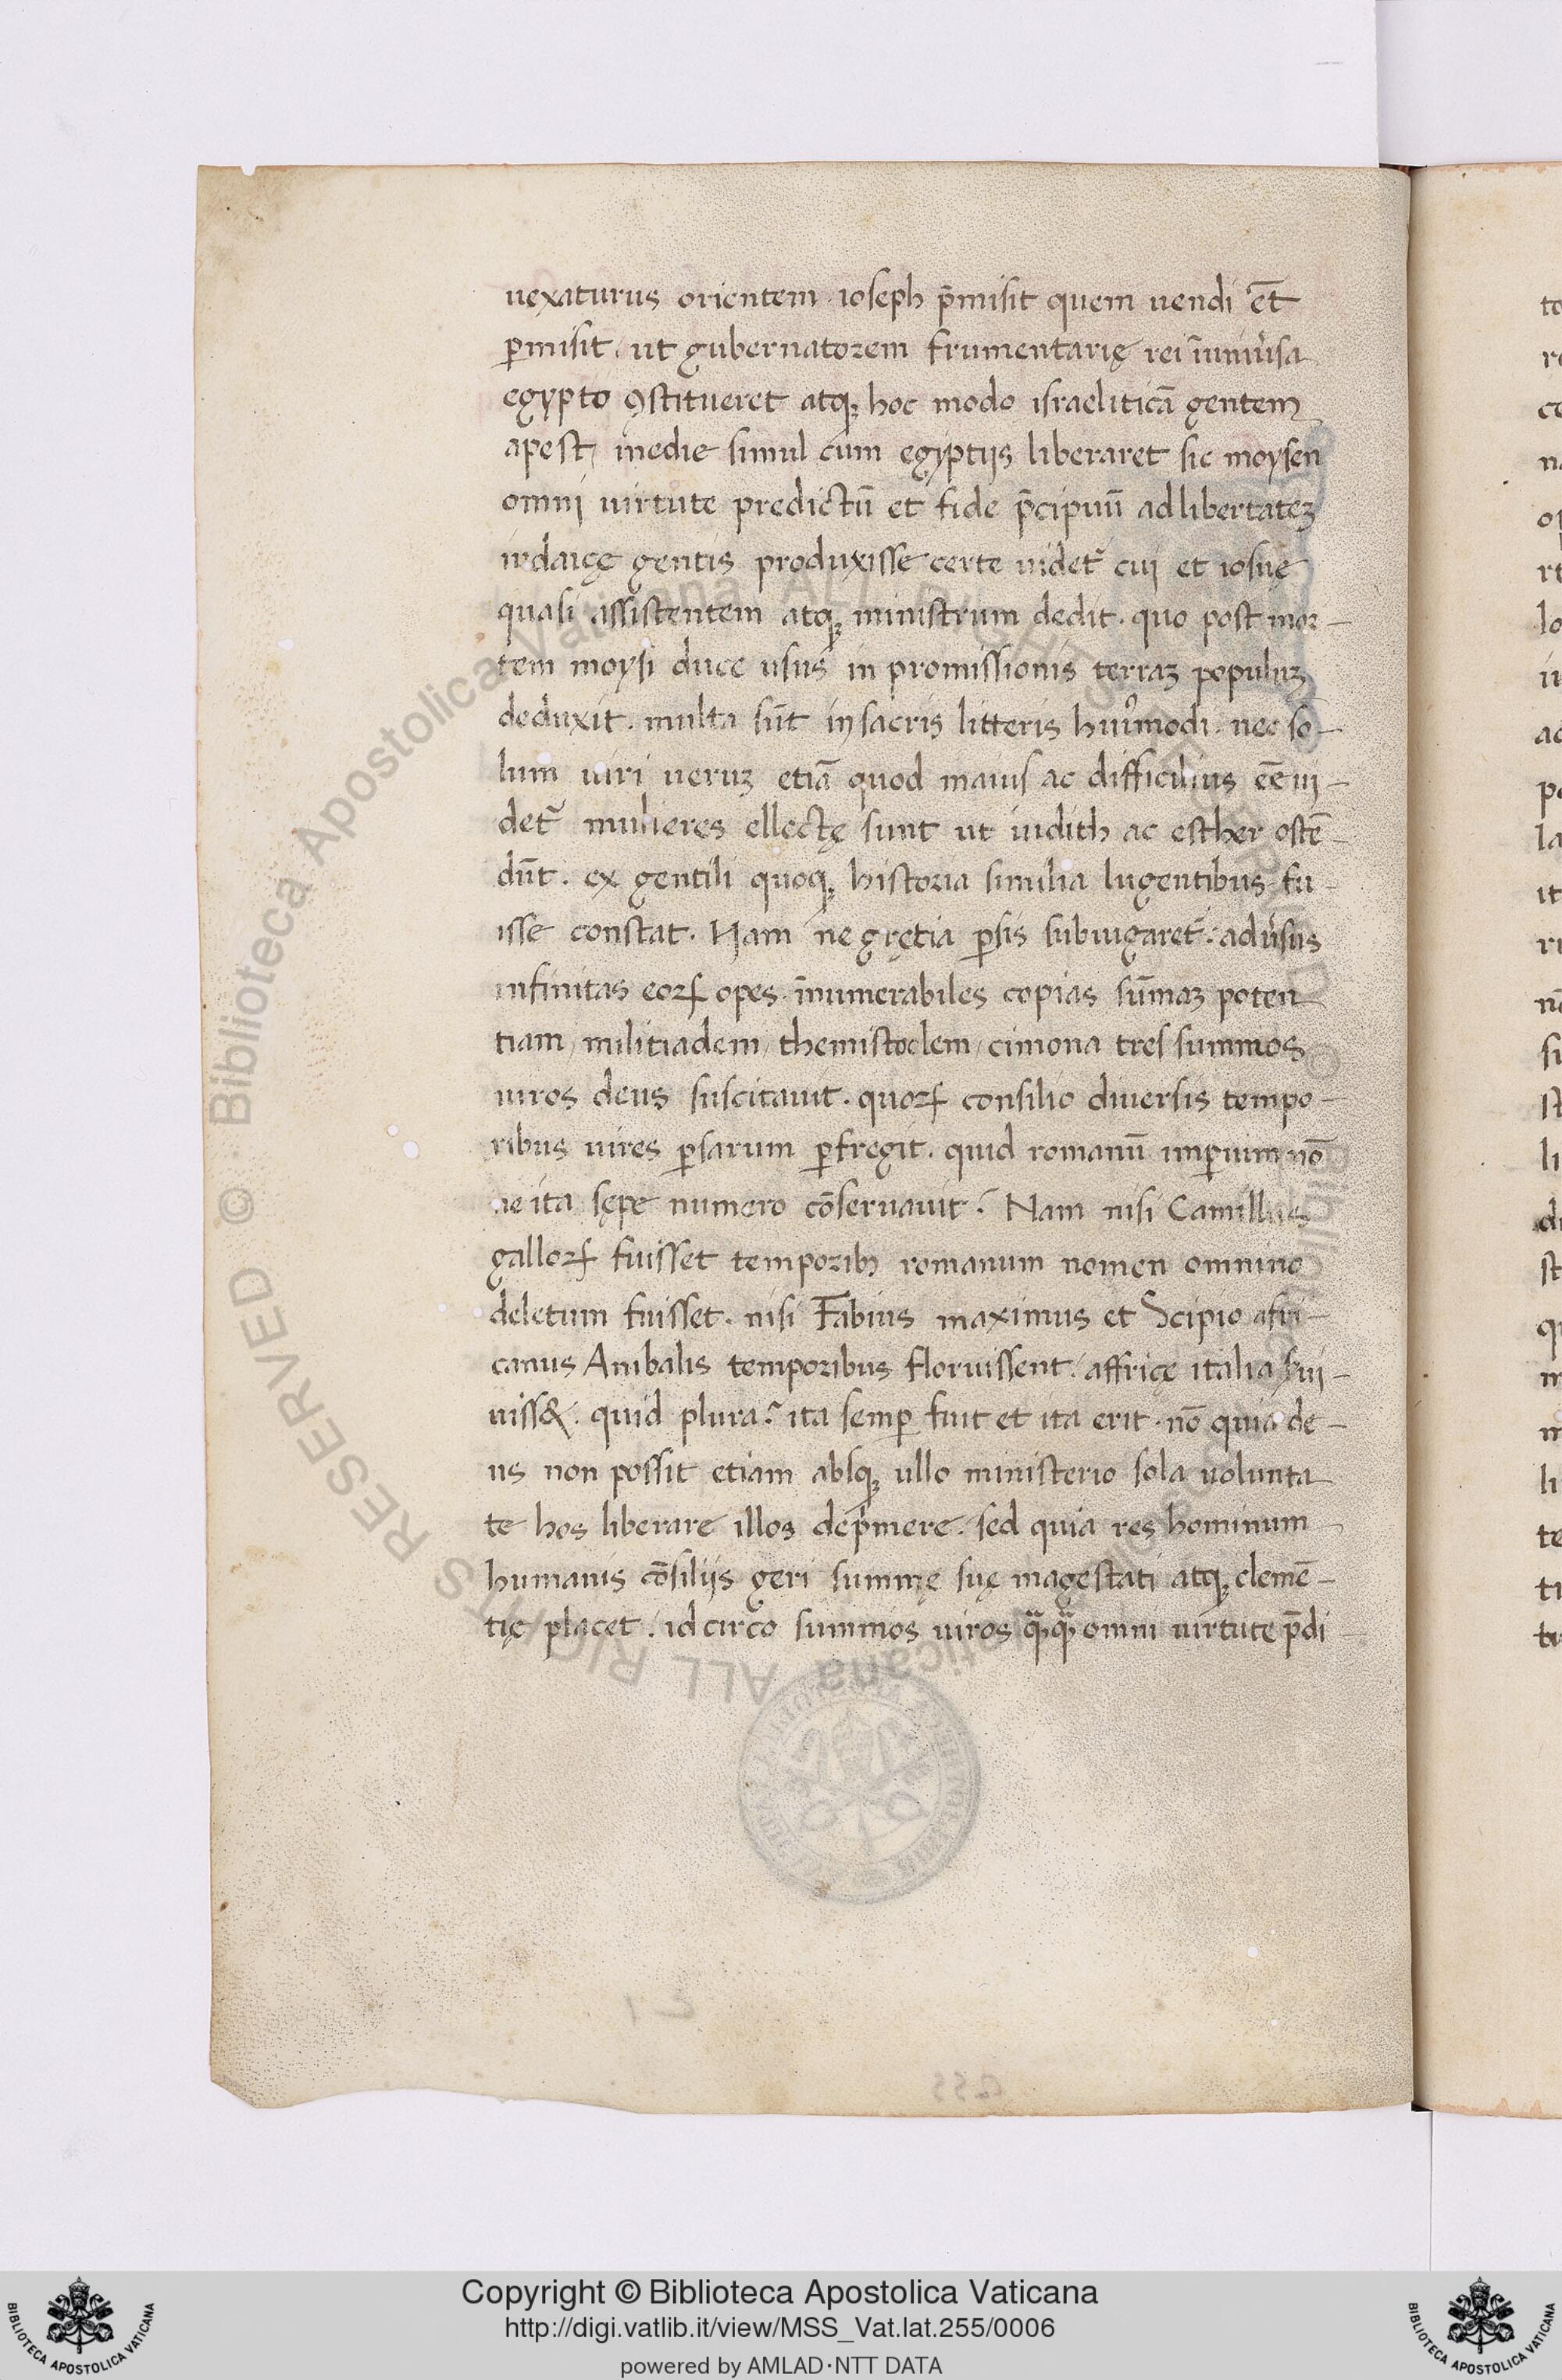 uexaturus orientem ioseph p̄misit quem uendi et̄
ꝑmisit. ut gubernatorem frumentarię rei ī uniu̓sa
egypto ꝯstitueret atqꝫ hoc modo israeliticā gentem
apeste inedie simul cum egyptijs liberaret sic moysen
omni uirtute predictū et fide p̄cipuū ad libertateꝫ
iudaicę gentis produxisse certe uidet᷑ cui et iosue
quasi assistentem atqꝫ ministrum dedit. quo post mor-
tem moysi duce usus in promissionis terraꝫ populuꝫ
deduxit. multa sūt in sacris litteris huiꝰmodi. nec so-
lum uiri ueruꝫ etiā quod maius ac difficilius eē ui-
det᷑ mulieres ellectę sunt ut iudith ac esther ostē-
dūt. ex gentili quoqꝫ historia similia lugentibus fu-
isse constat. Nam ne gretia ꝑsis subiugaret᷑. adu̓sus
infinitas eoꝝ opes īnumerabiles copias sūmaꝫ poten
tiam / militiadem / themistoclem / cimona tres summos
uiros deus suscitauit. quoꝝ consilio diuersis tempo-
ribus uires ꝑsarum ꝑfregit. quid romanū imꝑium nō
ne ita sępe numero cōseruauit. Nam nisi Camillus
galloꝝ fuisset temporibꝫ romanum nomen omnino
deletum fuisset. nisi Fabius maximus et Scipio afri-
canus Anibalis temporibus floruissent. affricę italia serui-
uiss&. quid plura? ita semꝑ fuit et ita erit. nō quia de-
us non possit etiam absqꝫ ullo ministerio sola uolunta
te hos liberare illos dep̓mere. sed quia res hominum
humanis cōsilijs geri summę suę magestati atqꝫ clemē-
tię placet. id circo summos uiros omni uirtute p̄di
Copyright © Biblioteca Apostolica Vaticana
http://digi.vatlib.it/view/MSS_Vat.lat.255/0006
powered by AMLAD·NTT DATA